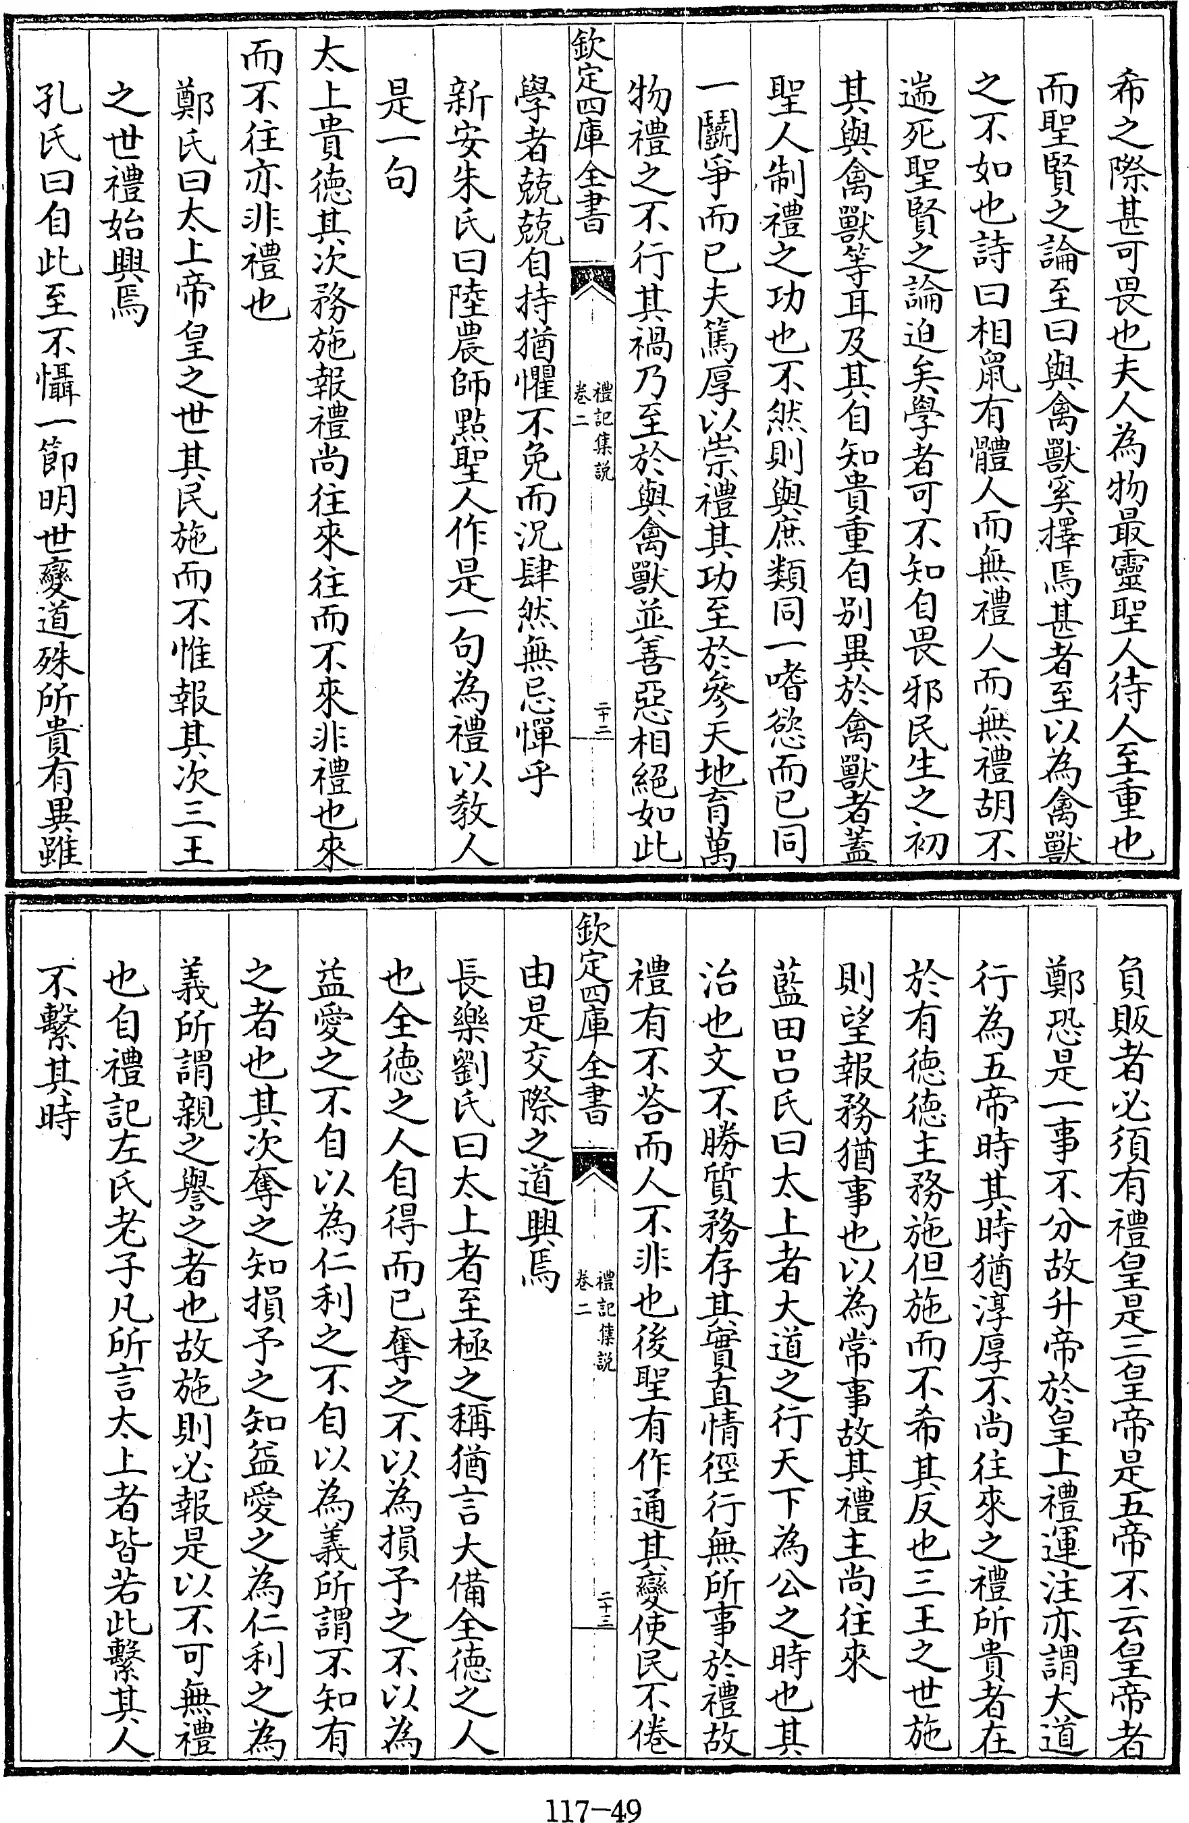 希之際甚可畏也夫人為物最靈聖人待人至重也
而聖賢之論至曰與禽獸奚擇焉甚者至以為禽獸
之不如也詩曰相鼠有體人而無禮人而無禮胡不
遄死聖賢之論迫矣學者可不知自畏邪民生之初
其與禽獸等耳及其自知貴重自別異於禽獸者蓋
聖人制禮之功也不然則與庶類同一嗜慾而已同
一鬬爭而已夫篤厚以崇禮其功至於參天地育萬
物禮之不行其禍乃至於與禽獸並善惡相絕如此
欽定四庫全書
禮記集説
卷二
二十二
學者兢兢自持猶懼不免而況肆然無忌憚乎
新安朱氏曰陸農師點聖人作是一句為禮以教人
是一句
太上貴德其次務施報禮尚往來往而不來非禮也來
而不往亦非禮也
鄭氏曰太上帝皇之世其民施而不惟報其次三王
之世禮始興焉
孔氏曰自此至不懾一節明世變道殊所貴有異雖
負販者必須有禮皇是三皇帝是五帝不云皇帝者
鄭恐是一事不分故升帝於皇上禮運注亦謂大道
行為五帝時其時猶淳厚不尚往來之禮所貴者在
於有德德主務施但施而不希其反也三王之世施
則望報務猶事也以為常事故其禮主尚往來
藍田呂氏曰太上者大道之行天下為公之時也其
治也文不勝質務存其實直情徑行無所事於禮故
禮有不荅而人不非也後聖有作通其變使民不倦
欽定四庫全書
禮記集説
卷二
二十三
由是交際之道興焉
長樂劉氏曰太上者至極之稱猶言大備全德之人
也全德之人自得而已奪之不以為損予之不以為
益愛之不自以為仁利之不自以為義所謂不知有
之者也其次奪之知損予之知益愛之為仁利之為
義所謂親之譽之者也故施則必報是以不可無禮
也自禮記左氏老子凡所言太上者皆若此繫其人
不繫其時
117-49